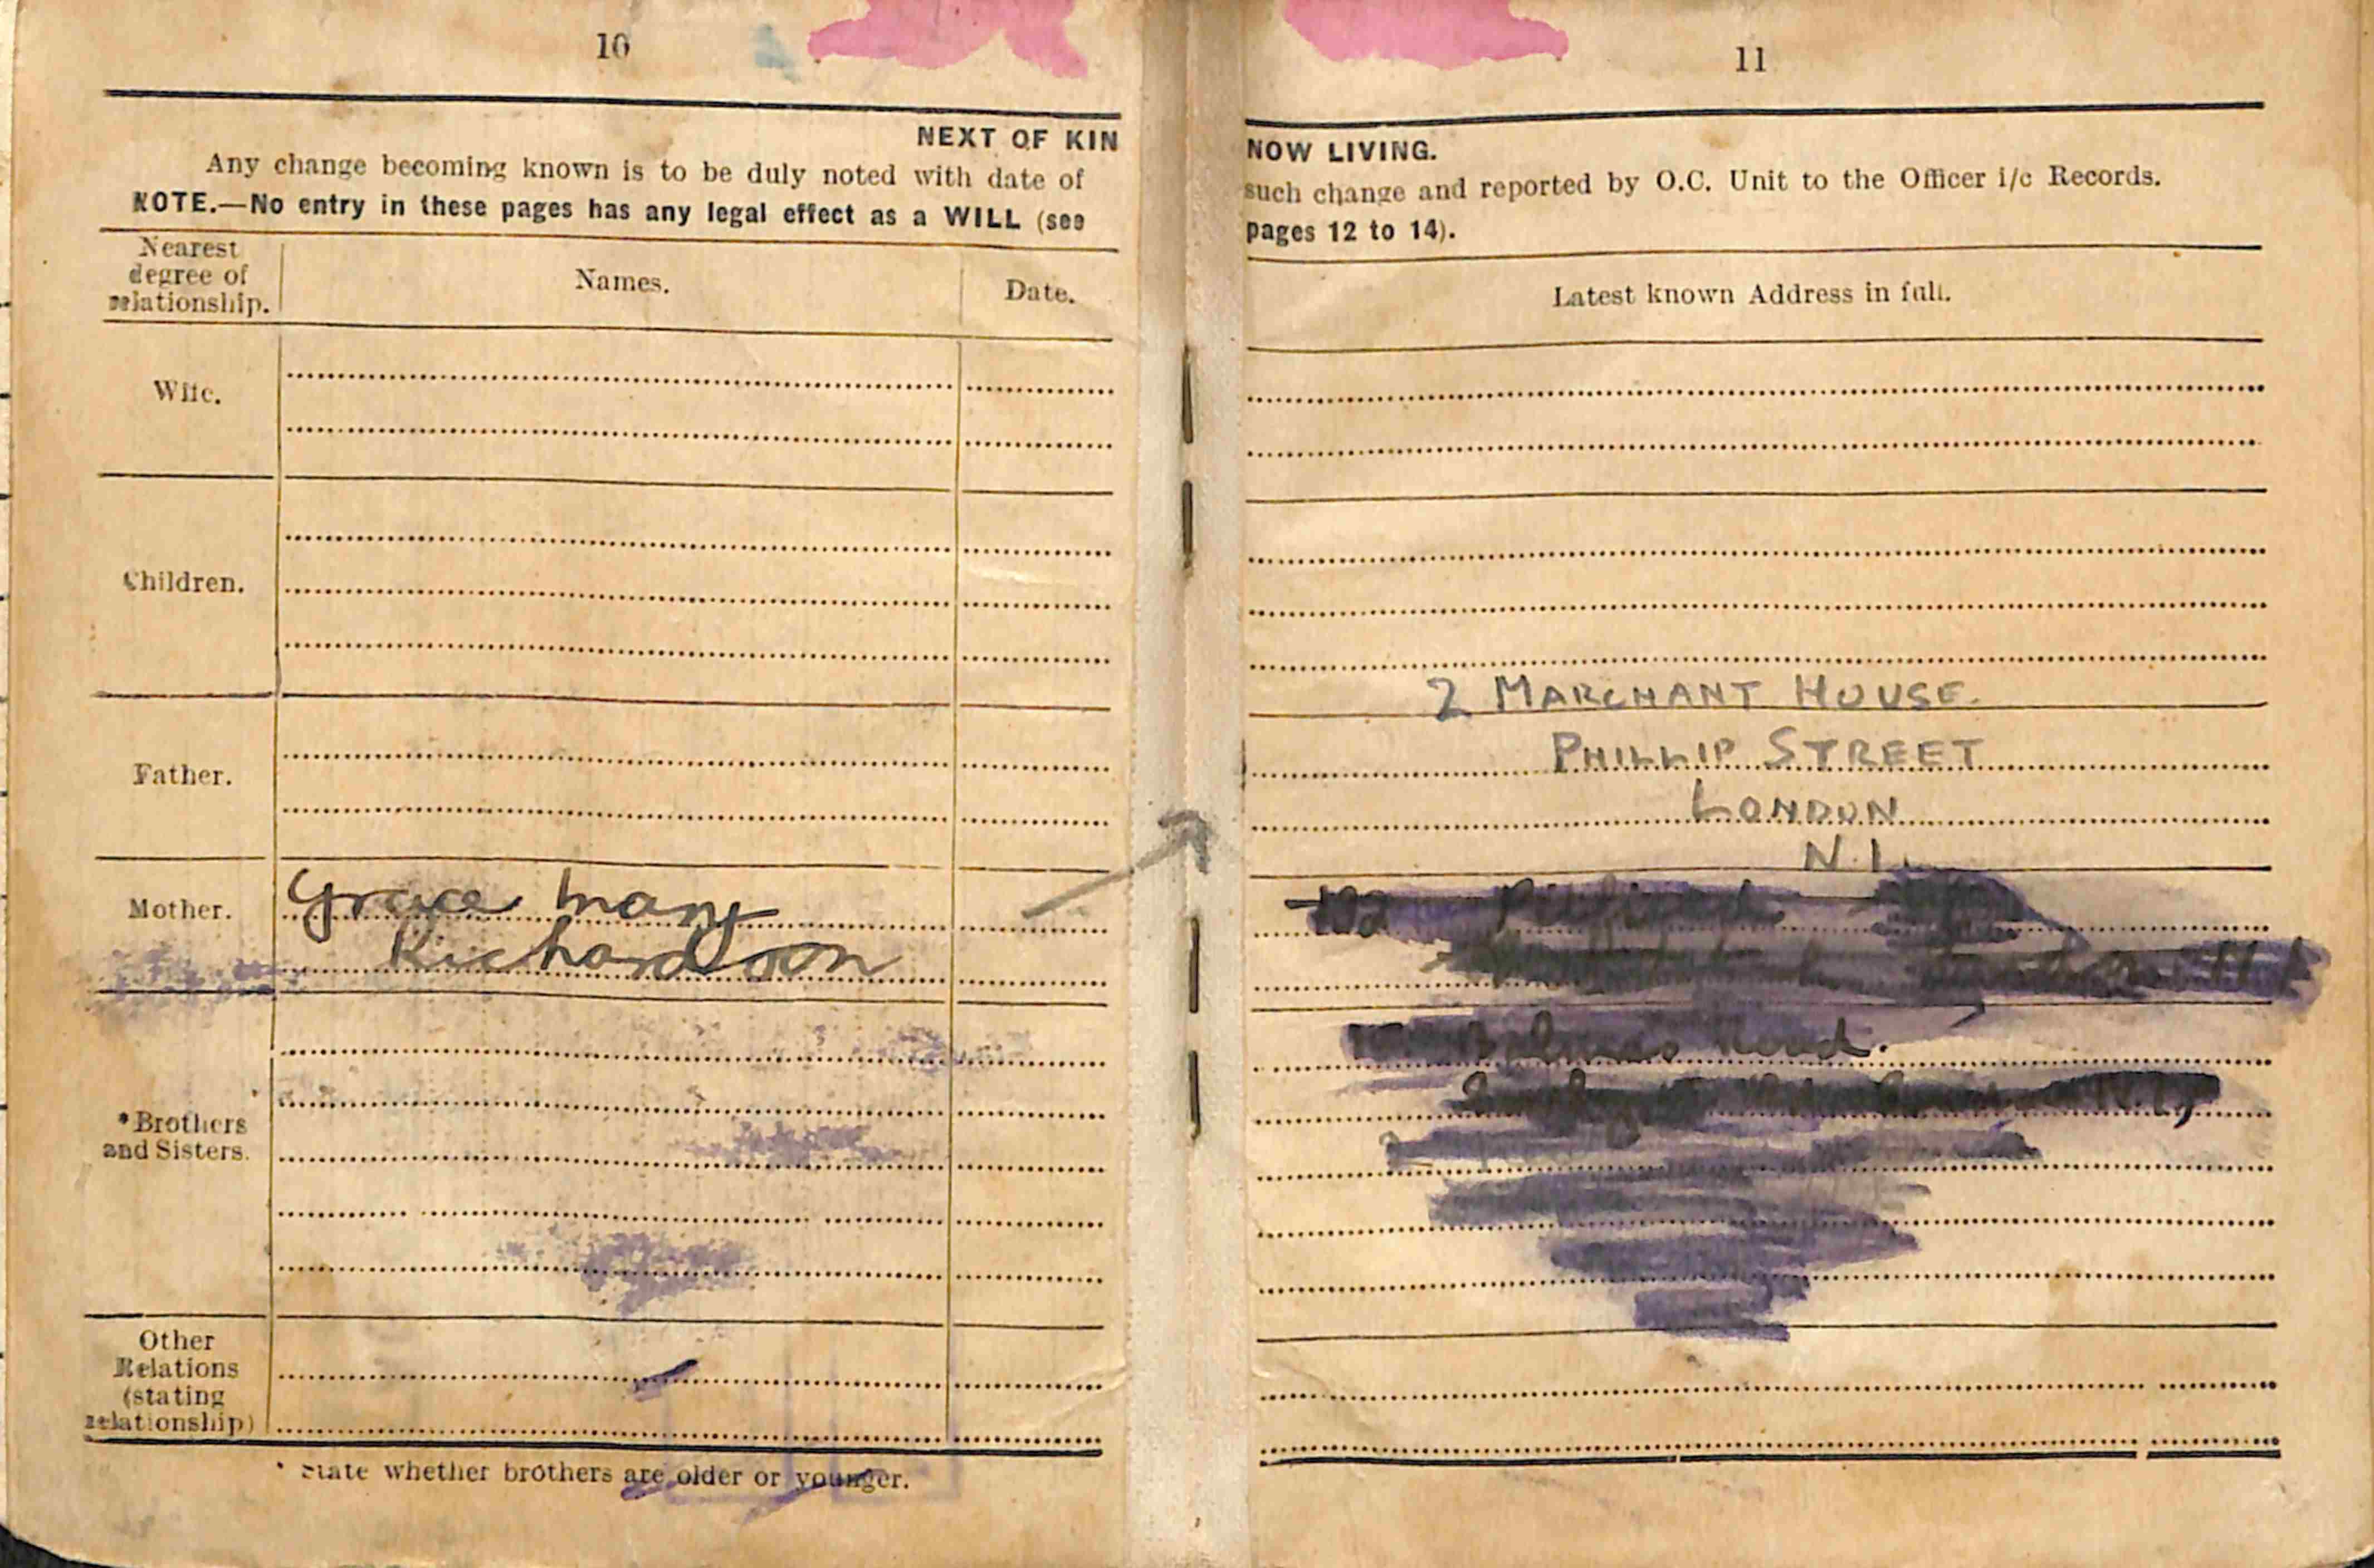 10
NEXT OF KIN
Any change becoming known is to be duly noted with date of
NOTE.—No entry in these pages has any legal effect as a WILL (see
Nearest
degree of
relationship.
Names.
Date.
Wife.
Children.
Father.
Mother.
Grace Mary
Richardson
*Brothers
and Sisters.
Other
Relations
(stating
relationship)
* State whether brothers are older or younger.
11
NOW LIVING.
such change and reported by O.C. Unit to the Officer i/c Records.
pages 12 to 14).
Latest known Address in full.
2 MARCHANT HOUSE.
PHILLIP STREET
LONDON
N.1.
102
Road.